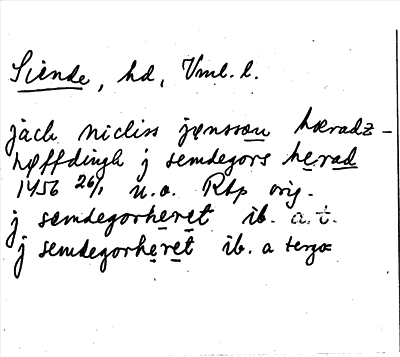 Siende, hd, Vml. l.
jach nicliss jønsson hæradz-
høffdingh j semdegors herad
1456 26/1 u.o. Rap orig.
j sæmdegorheret ib. a.t.
j semdegorheret ib. a tergo